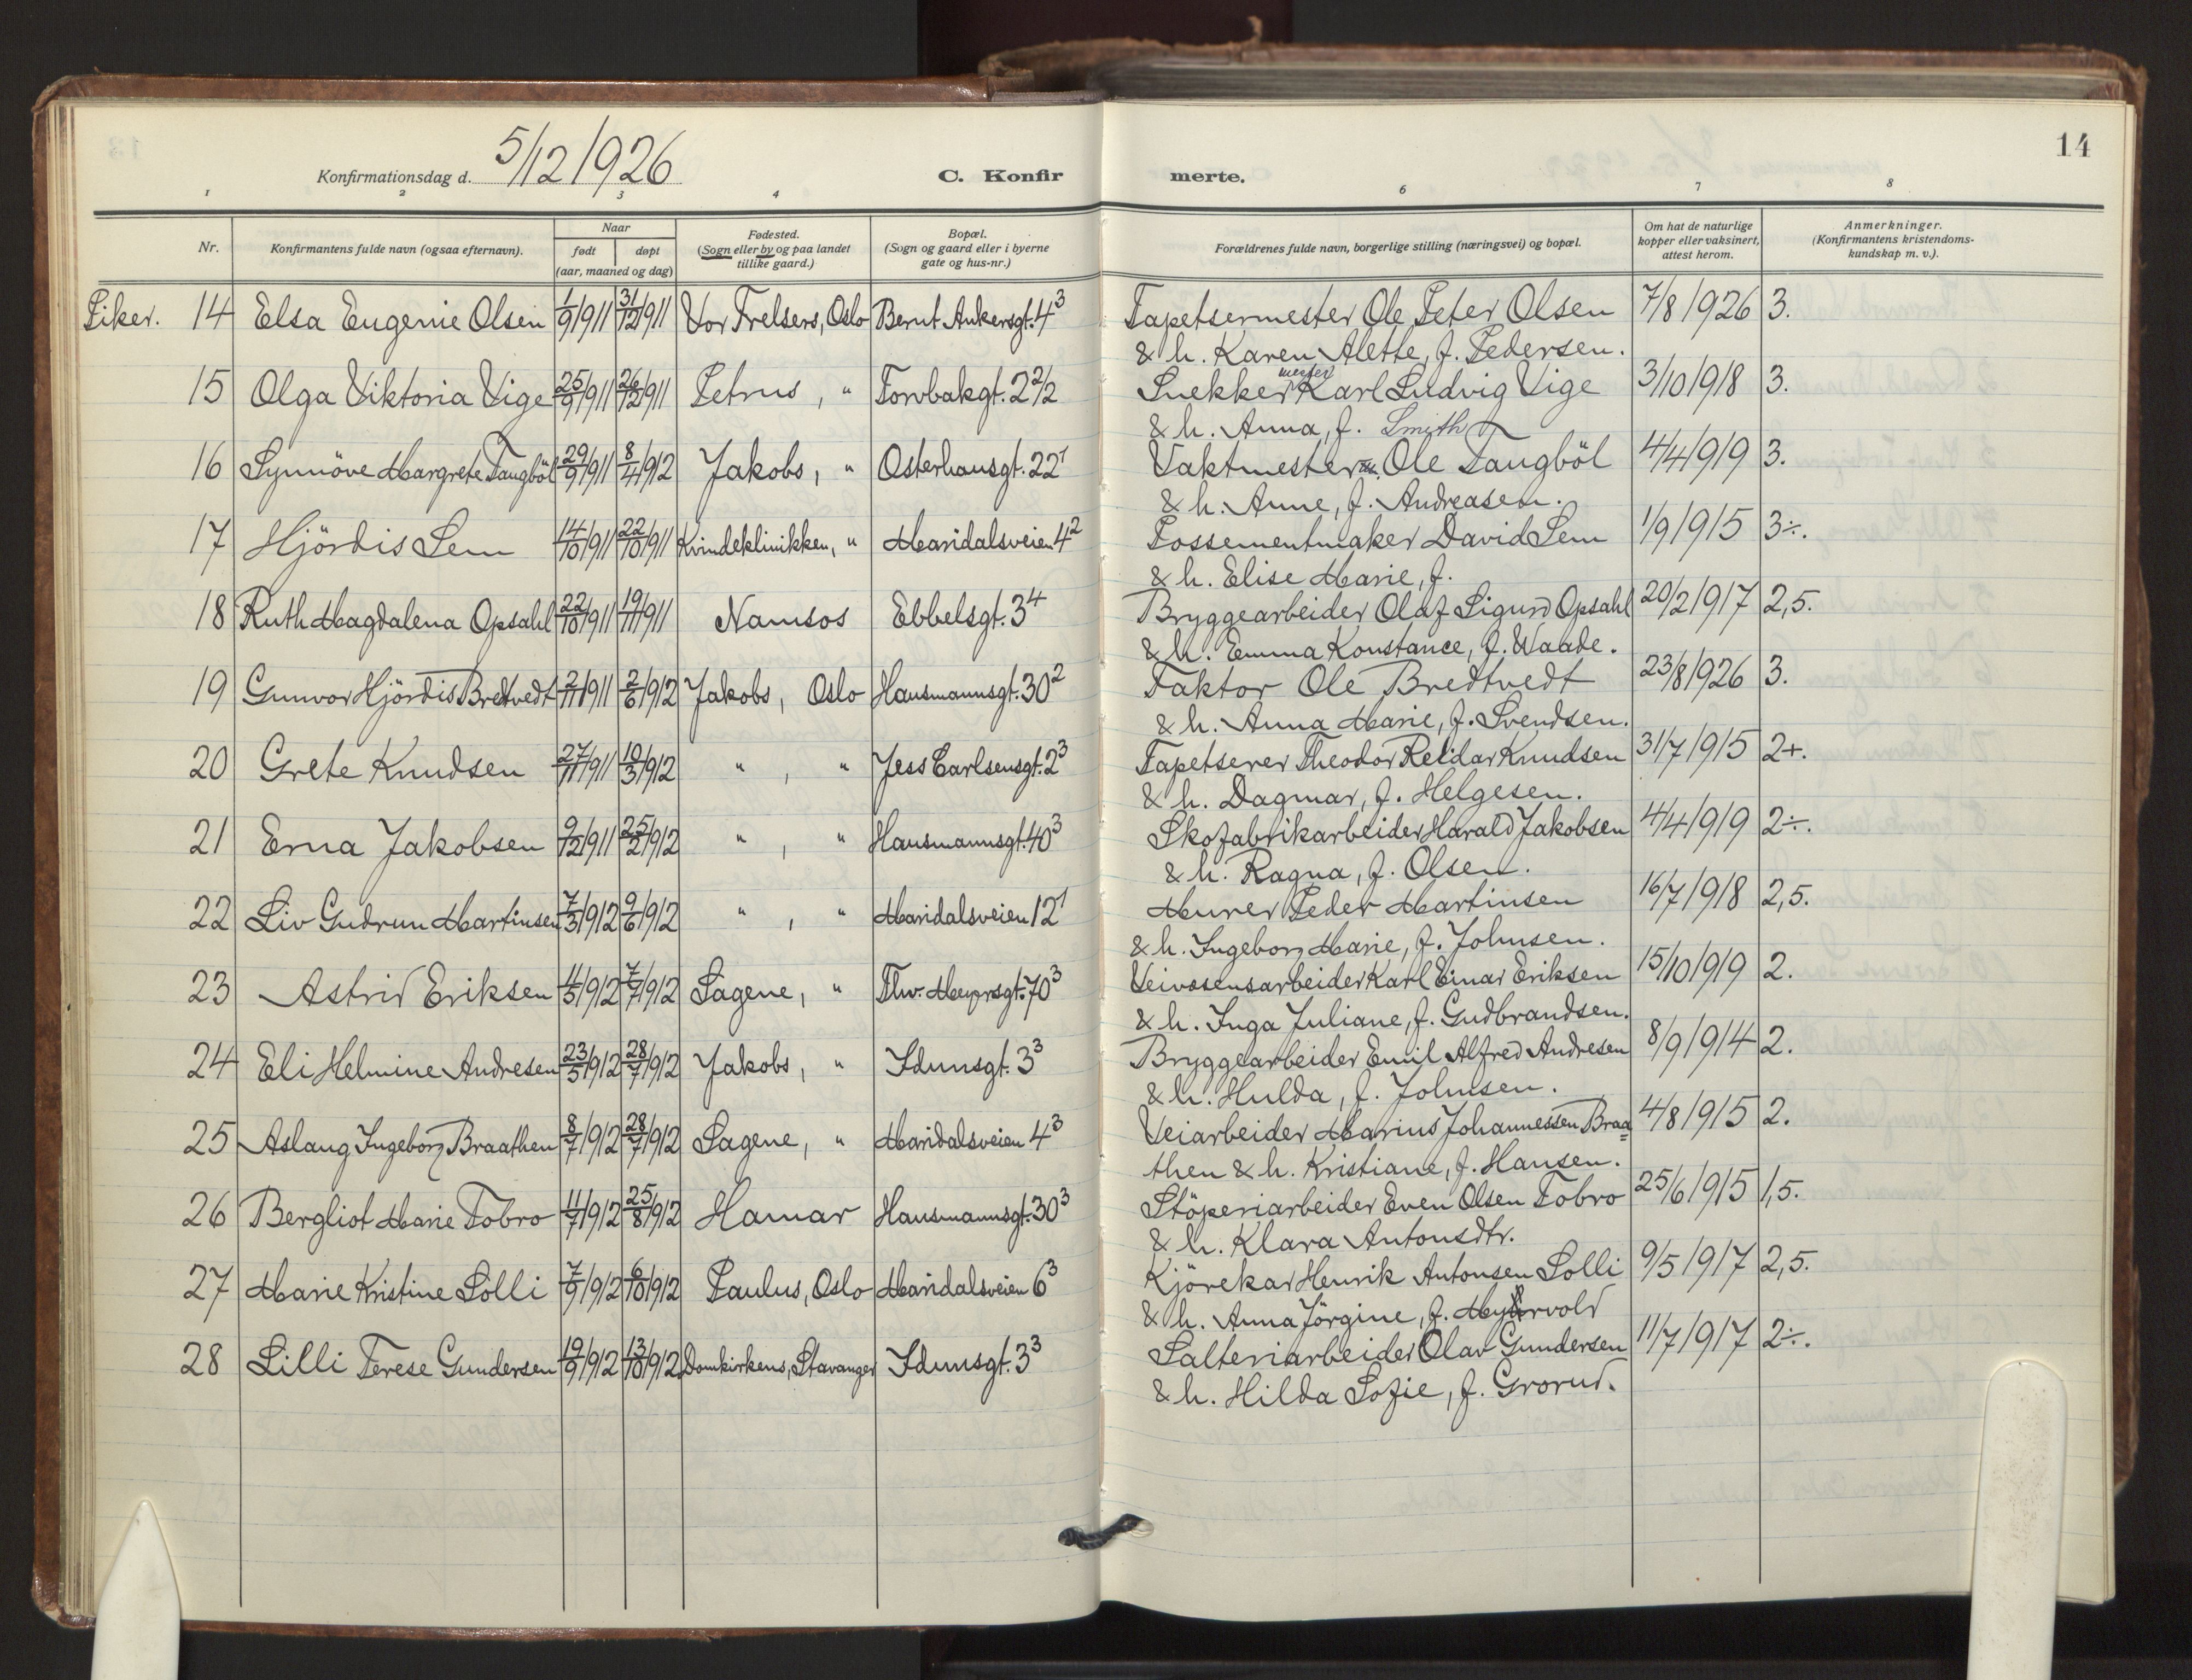 14
Konfirmationsdag d. 5/12 1926
C. Konfirmerte.
1 2 3 4 6 7 8
Nr. Konfirmantens fulde navn (ogsaa efternavn). Naar født døpt (aar, maaned og dag) Fødested. (Sogn eller by og paa landet tillike gaard.) Bopæl. (Sogn og gaard eller i byerne gate og hus-nr.) Forældrenes fulde navn, borgerlige stilling (næringsvei) og bopæl. Om hat de naturlige kopper eller vaksinert, attest herom. Anmerkninger. (Konfirmantens kristendoms-kundskap m. v.).
Piker. 14 Elsa Eugenie Olsen 1/9 1911 31/12 1911 Vor Frelsers, Oslo Bernt Ankersgt. 4³ Tapetsermester Ole Peter Olsen 7/8 1926 3.
& h. Karen Alette, f. Pedersen.
15 Olga Viktoria Vige 25/9 1911 26/12 1911 Petrus, " Torvbakgt. 2²/2 Snekkermester Karl Ludvig Vige 3/10 1918 3.
& h. Anna, f. Smith
16 Synnöve Margrete Taugböl 29/9 1911 8/4 1912 Jakobs, " Osterhausgt. 22¹ Vaktmester Ole Taugböl 4/4 1919 3.
& h. Anne, f. Andreasen.
17 Hjördis Lem 14/10 1911 22/10 1911 Kvindeklinikken, " Maridalsveien 4² Possementmaker David Lem 1/9 1915 3÷.
& h. Elise Marie, f.
18 Ruth Magdalena Opsahl 22/10 1911 19/11 1911 Namsos Ebbelsgt. 3⁴ Bryggearbeider Olaf Sigurd Opsahl 20/2 1917 2,5.
& h. Emma Konstance, f. Waade.
19 Gunvor Hjördis Bredtvedt 2/11 1911 2/6 1912 Jakobs, Oslo Hausmannsgt. 30² Faktor Ole Bredtvedt 23/8 1926 3.
& h. Anna Marie, f. Svendsen.
20 Grete Knudsen 27/11 1911 10/3 1912 " , " Jess Carlsensgt. 2³ Tapetserer Theodor Reidar Knudsen 31/7 1915 2+.
& h. Dagmar, f. Helgesen.
21 Erna Jakobsen 9/12 1911 25/2 1912 " , " Hausmannsgt. 40³ Skofabrikarbeider Harald Jakobsen 4/4 1919 2÷.
& h. Ragna, f. Olsen.
22 Liv Gudrun Martinsen 7/3 1912 9/6 1912 " , " Maridalsveien 12¹ Murer Peder Martinsen 16/7 1918 2,5.
& h. Ingeborg Marie, f. Johnsen.
23 Astrid Eriksen 4/5 1912 7/7 1912 Sagene, " Thv. Meyersgt. 70³ Veivæsensarbeider Karl Einar Eriksen 15/10 1919 2.
& h. Inga Juliane, f. Gudbrandsen.
24 Eli Helmine Andresen 23/5 1912 28/7 1912 Jakobs, " Idunsgt. 3³ Bryggearbeider Emil Alfred Andresen 8/9 1914 2.
& h. Hulda, f. Johnsen.
25 Aslaug Ingeborg Braathen 8/7 1912 28/7 1912 Sagene, " Maridalsveien 4³ Veiarbeider Marius Johannessen Braa= 4/8 1915 2.
then & h. Kristiane, f. Hansen.
26 Bergliot Marie Tobro 11/7 1912 25/8 1912 Hamar Hausmannsgt. 30³ Stöperiarbeider Even Olsen Tobro 25/6 1915 1,5.
& h. Klara Antonsdtr.
27 Marie Kristine Lolli 7/9 1912 6/10 1912 Paulus, Oslo Maridalsveien 6³ Kjörekar Henrik Antonsen Lolli 9/5 1917 2,5.
& h. Anna Jörgine, f.
28 Lilli Terese Gundersen 19/9 1912 13/10 1912 Domkirkens, Stavanger Idunsgt. 3³ Salteriarbeider Olav Gundersen 11/7 1917 2÷.
& h. Hilda Sofie, f. Grorud.